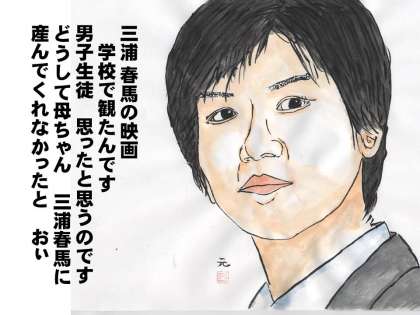 三浦 春馬の映画
学校で観たんです
男子生徒 思ったと思うのです
どうして母ちゃん 三浦春馬に
産んでくれなかったと おぃ
元